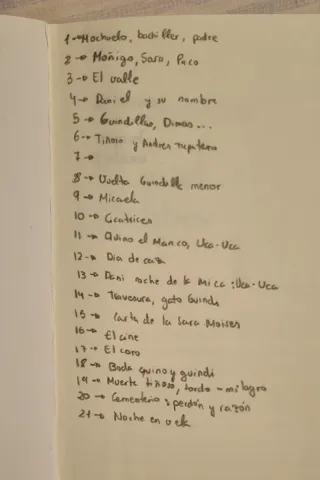 1→ Mochuelo, bachiller, padre
2→ Moñigo, Sara, Paco
3→ El valle
4→ Daniel y su nombre
5→ Guindillas, Dimas...
6→ Tiñoso y Andrés zapatero
7→
8→ Vuelta Guindilla menor
9→ Micaela
10→ Cicatrices
11→ Quino el Manco, Uca-Uca
12→ Dia de caza
13→ Dani noche de la Mica: Uca-Uca
14→ Travesura, gato Guindi
15→ Carta de la Sara Moises
16→ El cine
17→ El coro
18→ Boda quino y guindi
19→ Muerte tiñoso, tordo - milagro
20→ Cementerio: perdón y razón
21→ Noche en vela